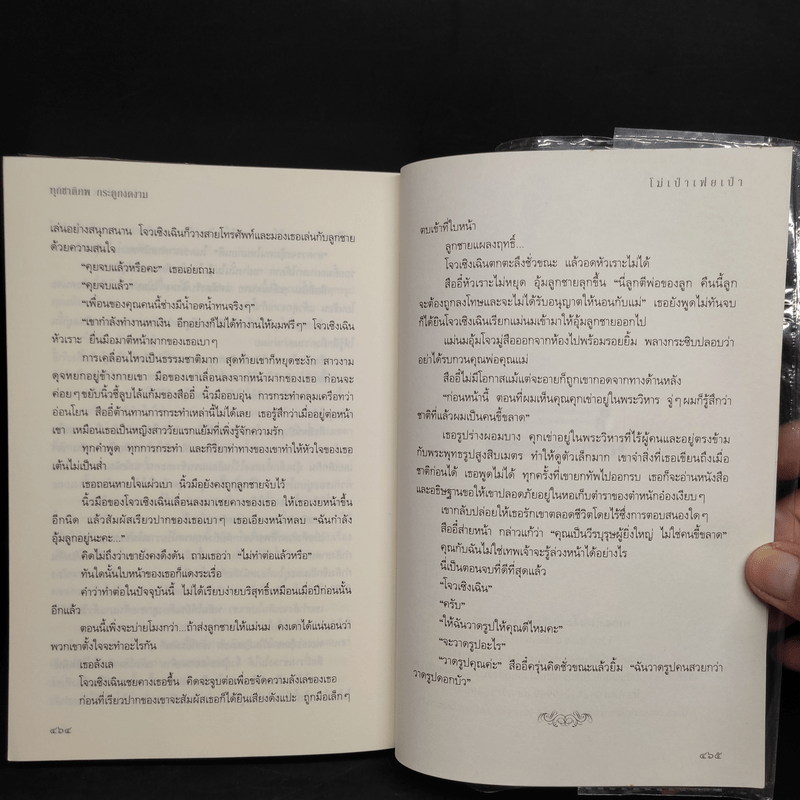 ทุกชาติภพ กระดูกงดงาม
เล่นอย่างสนุกสนาน โจวเซิงเฉินก็วางสายโทรศัพท์และมองเธอเล่นกับลูกชาย
ด้วยความสนใจ
“คุยจบแล้วหรือคะ” เธอเอ่ยถาม
“คุยจบแล้ว”
“เพื่อนของคุณคนนี้ช่างมีน้ำอดน้ำทนจริงๆ”
“เขากำลังทำงานหาเงิน อีกอย่างก็ไม่ได้ทำงานให้ผมฟรีๆ” โจวเซิงเฉิน
หัวเราะ ยื่นมือมาตีหน้าผากของเธอเบาๆ
การเคลื่อนไหวเป็นธรรมชาติมาก สุดท้ายเขาก็หยุดชะงัก สาวงาม
ดุจหยกอยู่ข้างกายเขา มือของเขาเลื่อนลงจากหน้าผากของเธอ ก่อนจะ
ค่อยๆ ขยับนิ้วชี้ลูบไล้แก้มของสืออี๋ นิ้วมืออบอุ่น การกระทำคลุมเครือทว่า
อ่อนโยน สืออี๋ต้านทานการกระทำเหล่านี้ไม่ได้เลย เธอรู้สึกว่าเมื่ออยู่ต่อหน้า
เขา เหมือนเธอเป็นหญิงสาววัยแรกแย้มที่เพิ่งรู้จักความรัก
ทุกคำพูด ทุกการกระทำ และกิริยาท่าทางของเขาทำให้หัวใจของเธอ
เต้นไม่เป็นส่ำ
เธอถอนหายใจแผ่วเบา นิ้วมือยังคงถูกลูกชายจับไว้
นิ้วมือของโจวเซิงเฉินเลื่อนลงมาเชยคางของเธอ ให้เธอเงยหน้าขึ้น
อีกนิด แล้วสัมผัสเรียวปากของเธอเบาๆ เธอเอียงหน้าหลบ “ฉันกำลัง
อุ้มลูกอยู่นะคะ...”
คิดไม่ถึงว่าเขายังคงดึงดัน ถามเธอว่า “ไม่ทำต่อแล้วหรือ”
ทันใดนั้นใบหน้าของเธอก็แดงระเรื่อ
คำว่าทำต่อในปัจจุบันนี้ ไม่ได้เรียบง่ายบริสุทธิ์เหมือนเมื่อปีก่อนนั้น
อีกแล้ว
ตอนนี้เพิ่งจะบ่ายโมงกว่า...ถ้าส่งลูกชายให้แม่นม คงเดาได้แน่นอนว่า
พวกเขาตั้งใจจะทำอะไรกัน
เธอลังเล
โจวเซิงเฉินเชยคางเธอขึ้น คิดจะจูบต่อเพื่อขจัดความลังเลของเธอ
ก่อนที่เรียวปากของเขาจะสัมผัสเธอก็ได้ยินเสียงดังแปะ ถูกมือเล็กๆ
๔๖๔
โม่เป่าเฟยเป่า
ตบเข้าที่ใบหน้า
ลูกชายแผลงฤทธิ์...
โจวเซิงเฉินตกตะลึงชั่วขณะ แล้วอดหัวเราะไม่ได้
สืออี๋หัวเราะไม่หยุด อุ้มลูกชายลุกขึ้น “นี่ลูกตีพ่อของลูก คืนนี้ลูก
จะต้องถูกลงโทษและจะไม่ได้รับอนุญาตให้นอนกับแม่” เธอยังพูดไม่ทันจบ
ก็ได้ยินโจวเซิงเฉินเรียกแม่นมเข้ามาให้อุ้มลูกชายออกไป
แม่นมอุ้มโจวมู่สือออกจากห้องไปพร้อมรอยยิ้ม พลางกระซิบปลอบว่า
อย่าได้รบกวนคุณพ่อคุณแม่
สืออี๋ไม่มีโอกาสแม้แต่จะอายก็ถูกเขากอดจากทางด้านหลัง
“ก่อนหน้านี้ ตอนที่ผมเห็นคุณคุกเข่าอยู่ในพระวิหาร จู่ๆ ผมก็รู้สึกว่า
ชาติที่แล้วผมเป็นคนขี้ขลาด”
เธอรูปร่างผอมบาง คุกเข่าอยู่ในพระวิหารที่ไร้ผู้คนและอยู่ตรงข้าม
กับพระพุทธรูปสูงสิบเมตร ทำให้ดูตัวเล็กมาก เขาจำสิ่งที่เธอเขียนถึงเมื่อ
ชาติก่อนได้ เธอพูดไม่ได้ ทุกครั้งที่เขายกทัพไปออกรบ เธอก็จะอ่านหนังสือ
และอธิษฐานขอให้เขาปลอดภัยอยู่ในหอเก็บตำราของตำหนักอ๋องเงียบๆ
เขากลับปล่อยให้เธอรักเขาตลอดชีวิตโดยไร้ซึ่งการตอบสนองใดๆ
สืออี๋ส่ายหน้า กล่าวแก้ว่า “คุณเป็นวีรบุรุษผู้ยิ่งใหญ่ ไม่ใช่คนขี้ขลาด”
คุณกับฉันไม่ใช่เทพเจ้าจะรู้ล่วงหน้าได้อย่างไร
นี่เป็นตอนจบที่ดีที่สุดแล้ว
“โจวเซิงเฉิน”
“ครับ”
“ให้ฉันวาดรูปให้คุณดีไหมคะ”
“จะวาดรูปอะไร”
“วาดรูปคุณค่ะ” สืออี๋ครุ่นคิดชั่วขณะแล้วยิ้ม “ฉันวาดรูปคนสวยกว่า
วาดรูปดอกบัว”
๔๖๕